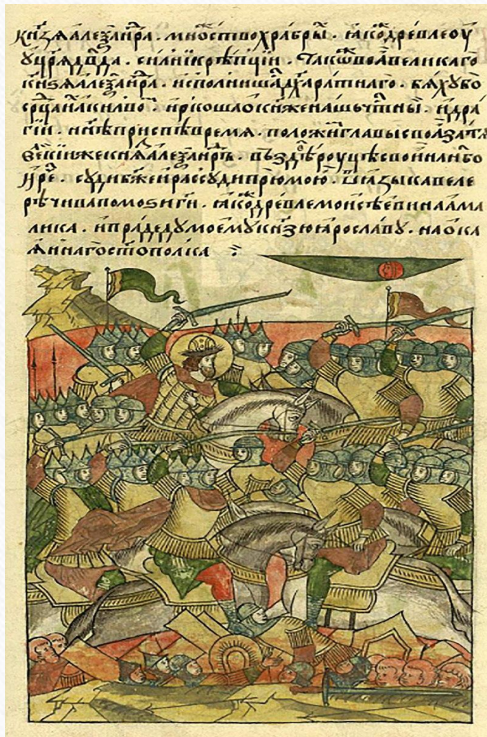 кнѧзѧ алеѯанⷣра . множество храбрыⷯ . ꙗкоⷤ древле оу
цр҃ѧ дв҃да . силнїи крѣпцїи . такⷪ воѧ великаго
кнѧзѧ алеѯанⷣра . исполнишасѧ дх҃а ратнаго . бѧху бо
и рѣкоша о кнѧже нашь чтⷭны . и дра
гїи . нн҃ѣ приспѣ время . положити главы своѧ за тѧ
кнѧз алеѯанⷣръ . въздѣⷡ роуцѣ свои на нб҃о
и реⷱ . суди бж҃е и разсуди прю мою . ѿ ꙗзыка веле
рѣчива помоѕи ми . ꙗкоⷤ древле моисѣеви на ама
лика . и прадѣду моему кнѧзю ꙗрославу . на ока
ѧннаго ст҃ополка